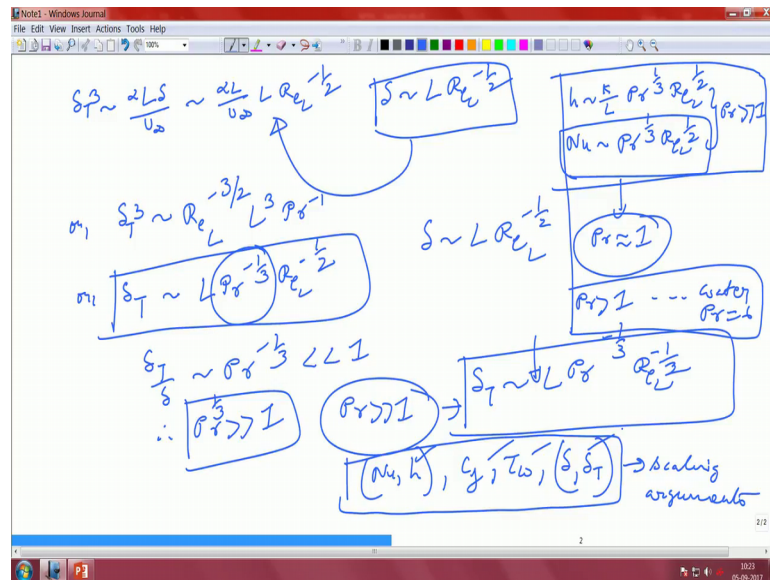 Note1 - Windows Journal
File Edit View Insert Actions Tools Help
100%
δ_T^3 ~ αLδ/U∞ ~ αL/U∞ L Re_L^{-1/2}
δ ~ L Re_L^{-1/2}
h ~ K/L Pr^{1/3} Re_L^{1/2}
Nu ~ Pr^{1/3} Re_L^{1/2}
Pr>>1
or, δ_T^3 ~ Re_L^{-3/2} L^3 Pr^{-1}
δ ~ L Re_L^{-1/2}
Pr ≈ 1
or, δ_T ~ L Pr^{-1/3} Re_L^{-1/2}
Pr>1 --- water
Pr=6
δ_T/δ ~ Pr^{-1/3} << 1
δ_T ~ L Pr^{-1/3} Re_L^{-1/2}
∴ Pr^{1/3} >> 1
Pr>>1 →
(Nu, h), C_f, τ_w, (δ, δ_T) → scaling
arguments
2/2
2
10:23
05-09-2017